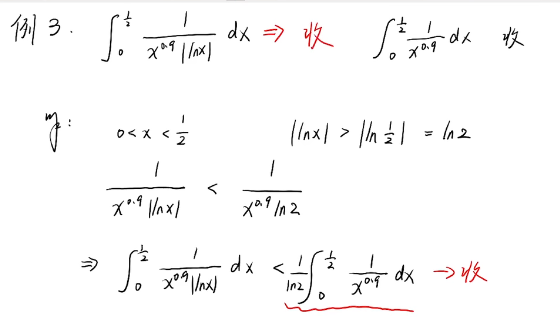 例3. ∫₀^{1/2} 1/(x^{0.9}|lnx|) dx ⇒ 收 ∫₀^{1/2} 1/x^{0.9} dx 收
0<x<1/2 |lnx| > |ln 1/2| = ln2
1/(x^{0.9}|lnx|) < 1/(x^{0.9} ln2)
⇒ ∫₀^{1/2} 1/(x^{0.9}|lnx|) dx < 1/ln2 ∫₀^{1/2} 1/x^{0.9} dx → 收